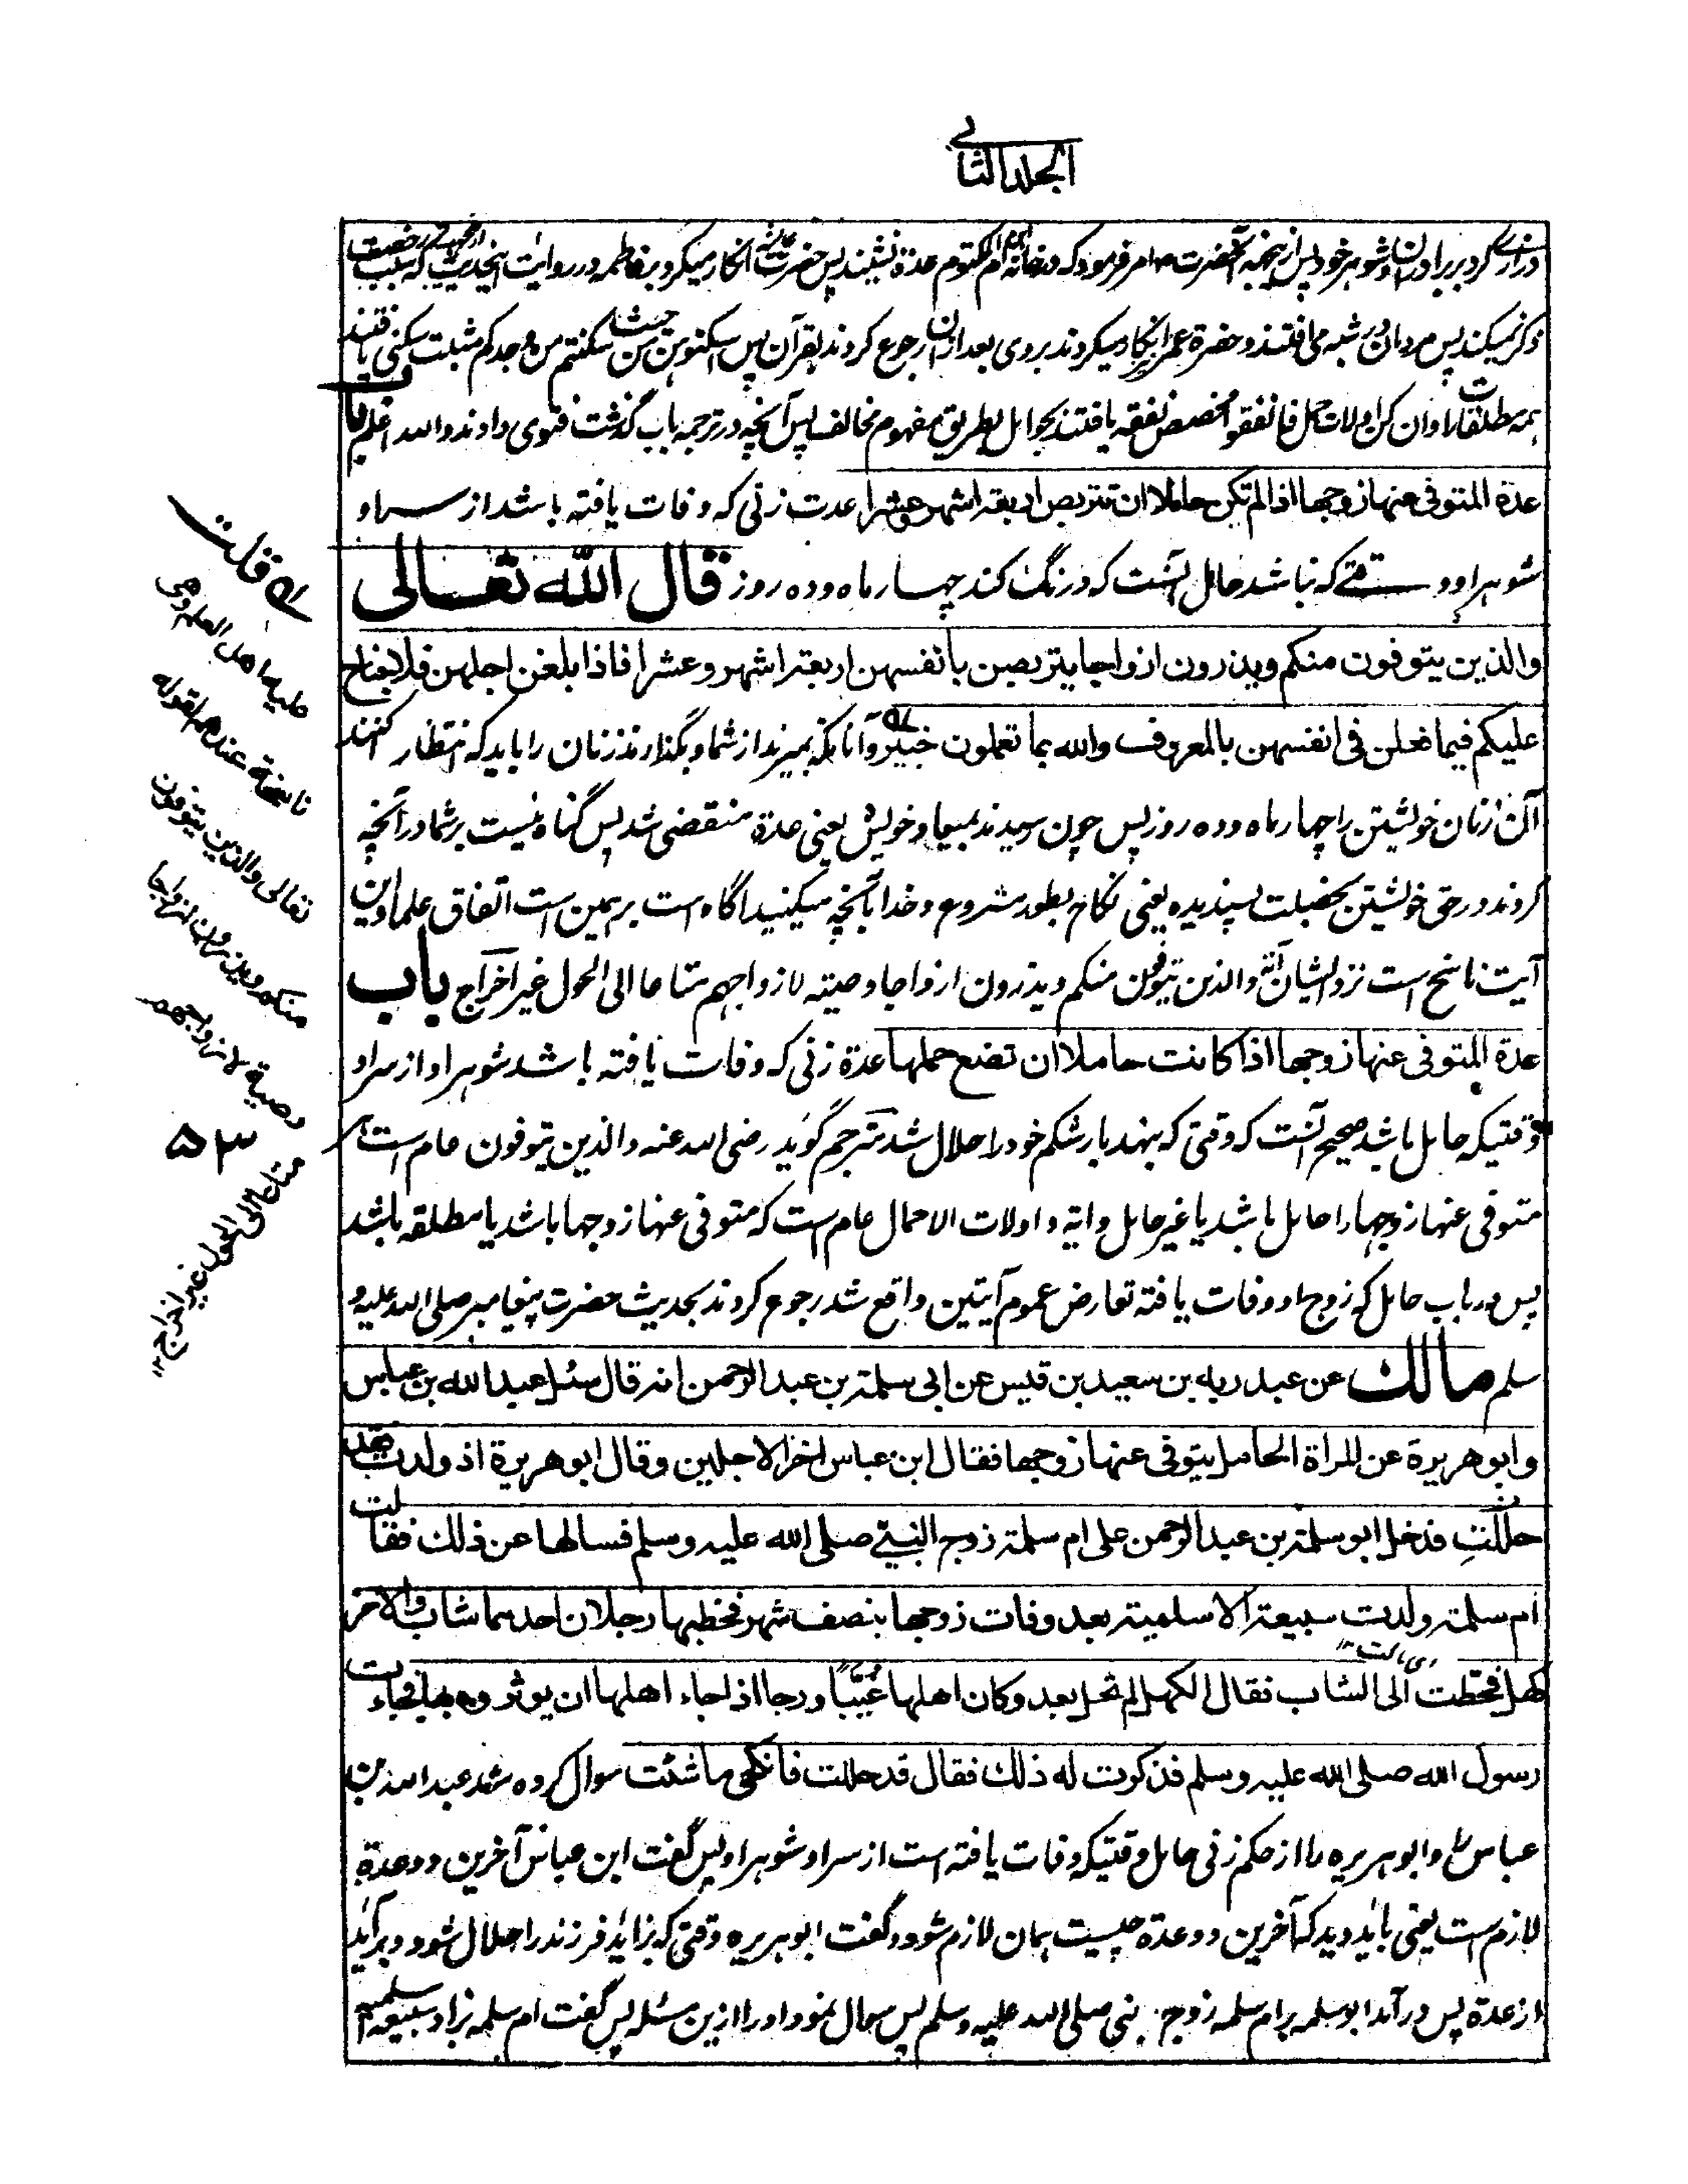 الجلد الثانی
درازی کرد بر برادران شوهر خود پس ازینجهة آنحضرت امر فرمود که در خانه ام مکتوم عدة نشیند پس حضرت عائشه انکار میکرد بر فاطمه در روایت اینحدیث که سبب رخصت
ذکر نمیکند پس مردمان در شبه می افتند و حضرة عمر انکار میکردند بر وی بعد ازان رجوع کردند بقرآن پس اسکنوهن من حیث سکنتم من وجدکم مثبت سکنی یافتند
همه مطلقات را و ان کن اولات حمل فانفقوا مخصص نفقه یافتند بحوامل بطریق مفهوم مخالف پس آنچه در ترجمه باب گذشت فتوی دادند والله اعلم باب
عدة المتوفی عنها زوجها اذا لم تکن حاملا ان تتربص اربعة اشهر وعشرا عدت زنی که وفات یافته باشد از سر او
شوهر او وقتے که نباشد حامل آنست که درنگ کند چهار ماه و ده روز قال الله تعالی
والذین یتوفون منکم ویذرون ازواجا یتربصن بانفسهن اربعة اشهر وعشرا فاذا بلغن اجلهن فلا جناح
علیکم فیما فعلن فی انفسهن بالمعروف والله بما تعملون خبیر و آنانکه بمیرند از شما و بگذارند زنان را باید که انتظار کنند
آن زنان خویشتن را چهار ماه و ده روز پس چون رسیدند بمیعاد خویش یعنی عدة منقضی شد پس گناه نیست بر شما در آنچه
کردند در حق خویشتن بخصلت پسندیده یعنی نکاح بطور مشروع و خدا بآنچه میکنید آگاه است بر همین است اتفاق علما و این
آیت ناسخ است نزد ایشان آیة والذین یتوفون منکم ویذرون ازواجا وصیة لازواجهم متاعا الی الحول غیر اخراج باب
عدة المتوفی عنها زوجها اذا کانت حاملا ان تضع حملها عدة زنی که وفات یافته باشد شوهر او از سر او
وقتیکه حامل باشد صحیح آنست که وقتی که بنهد بار شکم خود را حلال شد مترجم گوید رضی الله عنه والذین یتوفون عام است
متوفی عنها زوجها را حامل باشد یا غیر حامل و ایة و اولات الاحمال عام است که متوفی عنها زوجها باشد یا مطلقه باشد
پس در باب حامل که زوج او وفات یافته تعارض عموم آیتین واقع شد رجوع کردند بحدیث حضرت پیغامبر صلی الله علیه و
سلم مالک عن عبد ربه بن سعید بن قیس عن ابی سلمة بن عبد الرحمن انه قال سئل عبد الله بن عباس
وابو هریرة عن المراة الحامل یتوفی عنها زوجها فقال ابن عباس اخر الاجلین وقال ابو هریرة اذ ولدت فقد
حلت فدخل ابو سلمة بن عبد الرحمن علی ام سلمة زوج النبی صلی الله علیه وسلم فسالها عن ذلک فقالت
ام سلمة ولدت سبیعة الاسلمیة بعد وفات زوجها بنصف شهر فخطبها رجلان احدهما شاب والاخر
کهل فحطت الی الشاب فقال الکهل لم تحل بعد وکان اهلها غیبا ورجا اذا جاء اهلها ان یوثروه بها فجاءت
رسول الله صلی الله علیه وسلم فذکرت له ذلک فقال قد حللت فانکحی ما شئت سوال کرده شد عبد الله بن
عباس و ابو هریره را از حکم زنی حامل وقتیکه وفات یافته است از سر او شوهر او پس گفت ابن عباس آخرین دو عدة
لازم است یعنی باید دید که آخرین دو عدة چیست همان لازم شود و گفت ابو هریره وقتی که زاید فرزند را حلال شود و برآید
از عدة پس در آمد ابو سلمه بر ام سلمه زوج نبی صلی الله علیه وسلم پس سوال نمود او را ازین مسئله پس گفت ام سلمه بزاد سبیعه اسلمیه
قلت
علیه اهل العلم وهی
ناسخة عندهم لقوله
تعالی والذین یتوفون
منکم ویذرون ازواجا
وصیة لازواجهم
۵۳
متاعا الی الحول غیر اخراج ۱۲